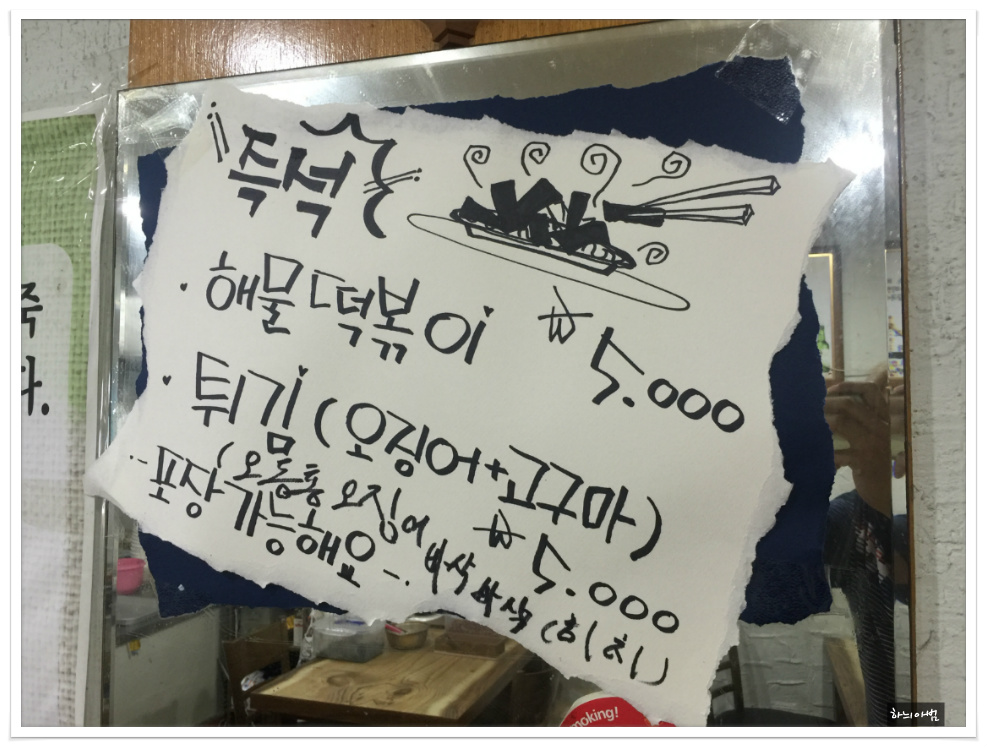 즉석
해물떡볶이
₩ 5.000
튀김 (오징어+고구마)
₩ 5.000
(오동통 오징어 바삭바삭 (히히))
-포장 가능해요-.
죽
다.
moking!
하늬아범